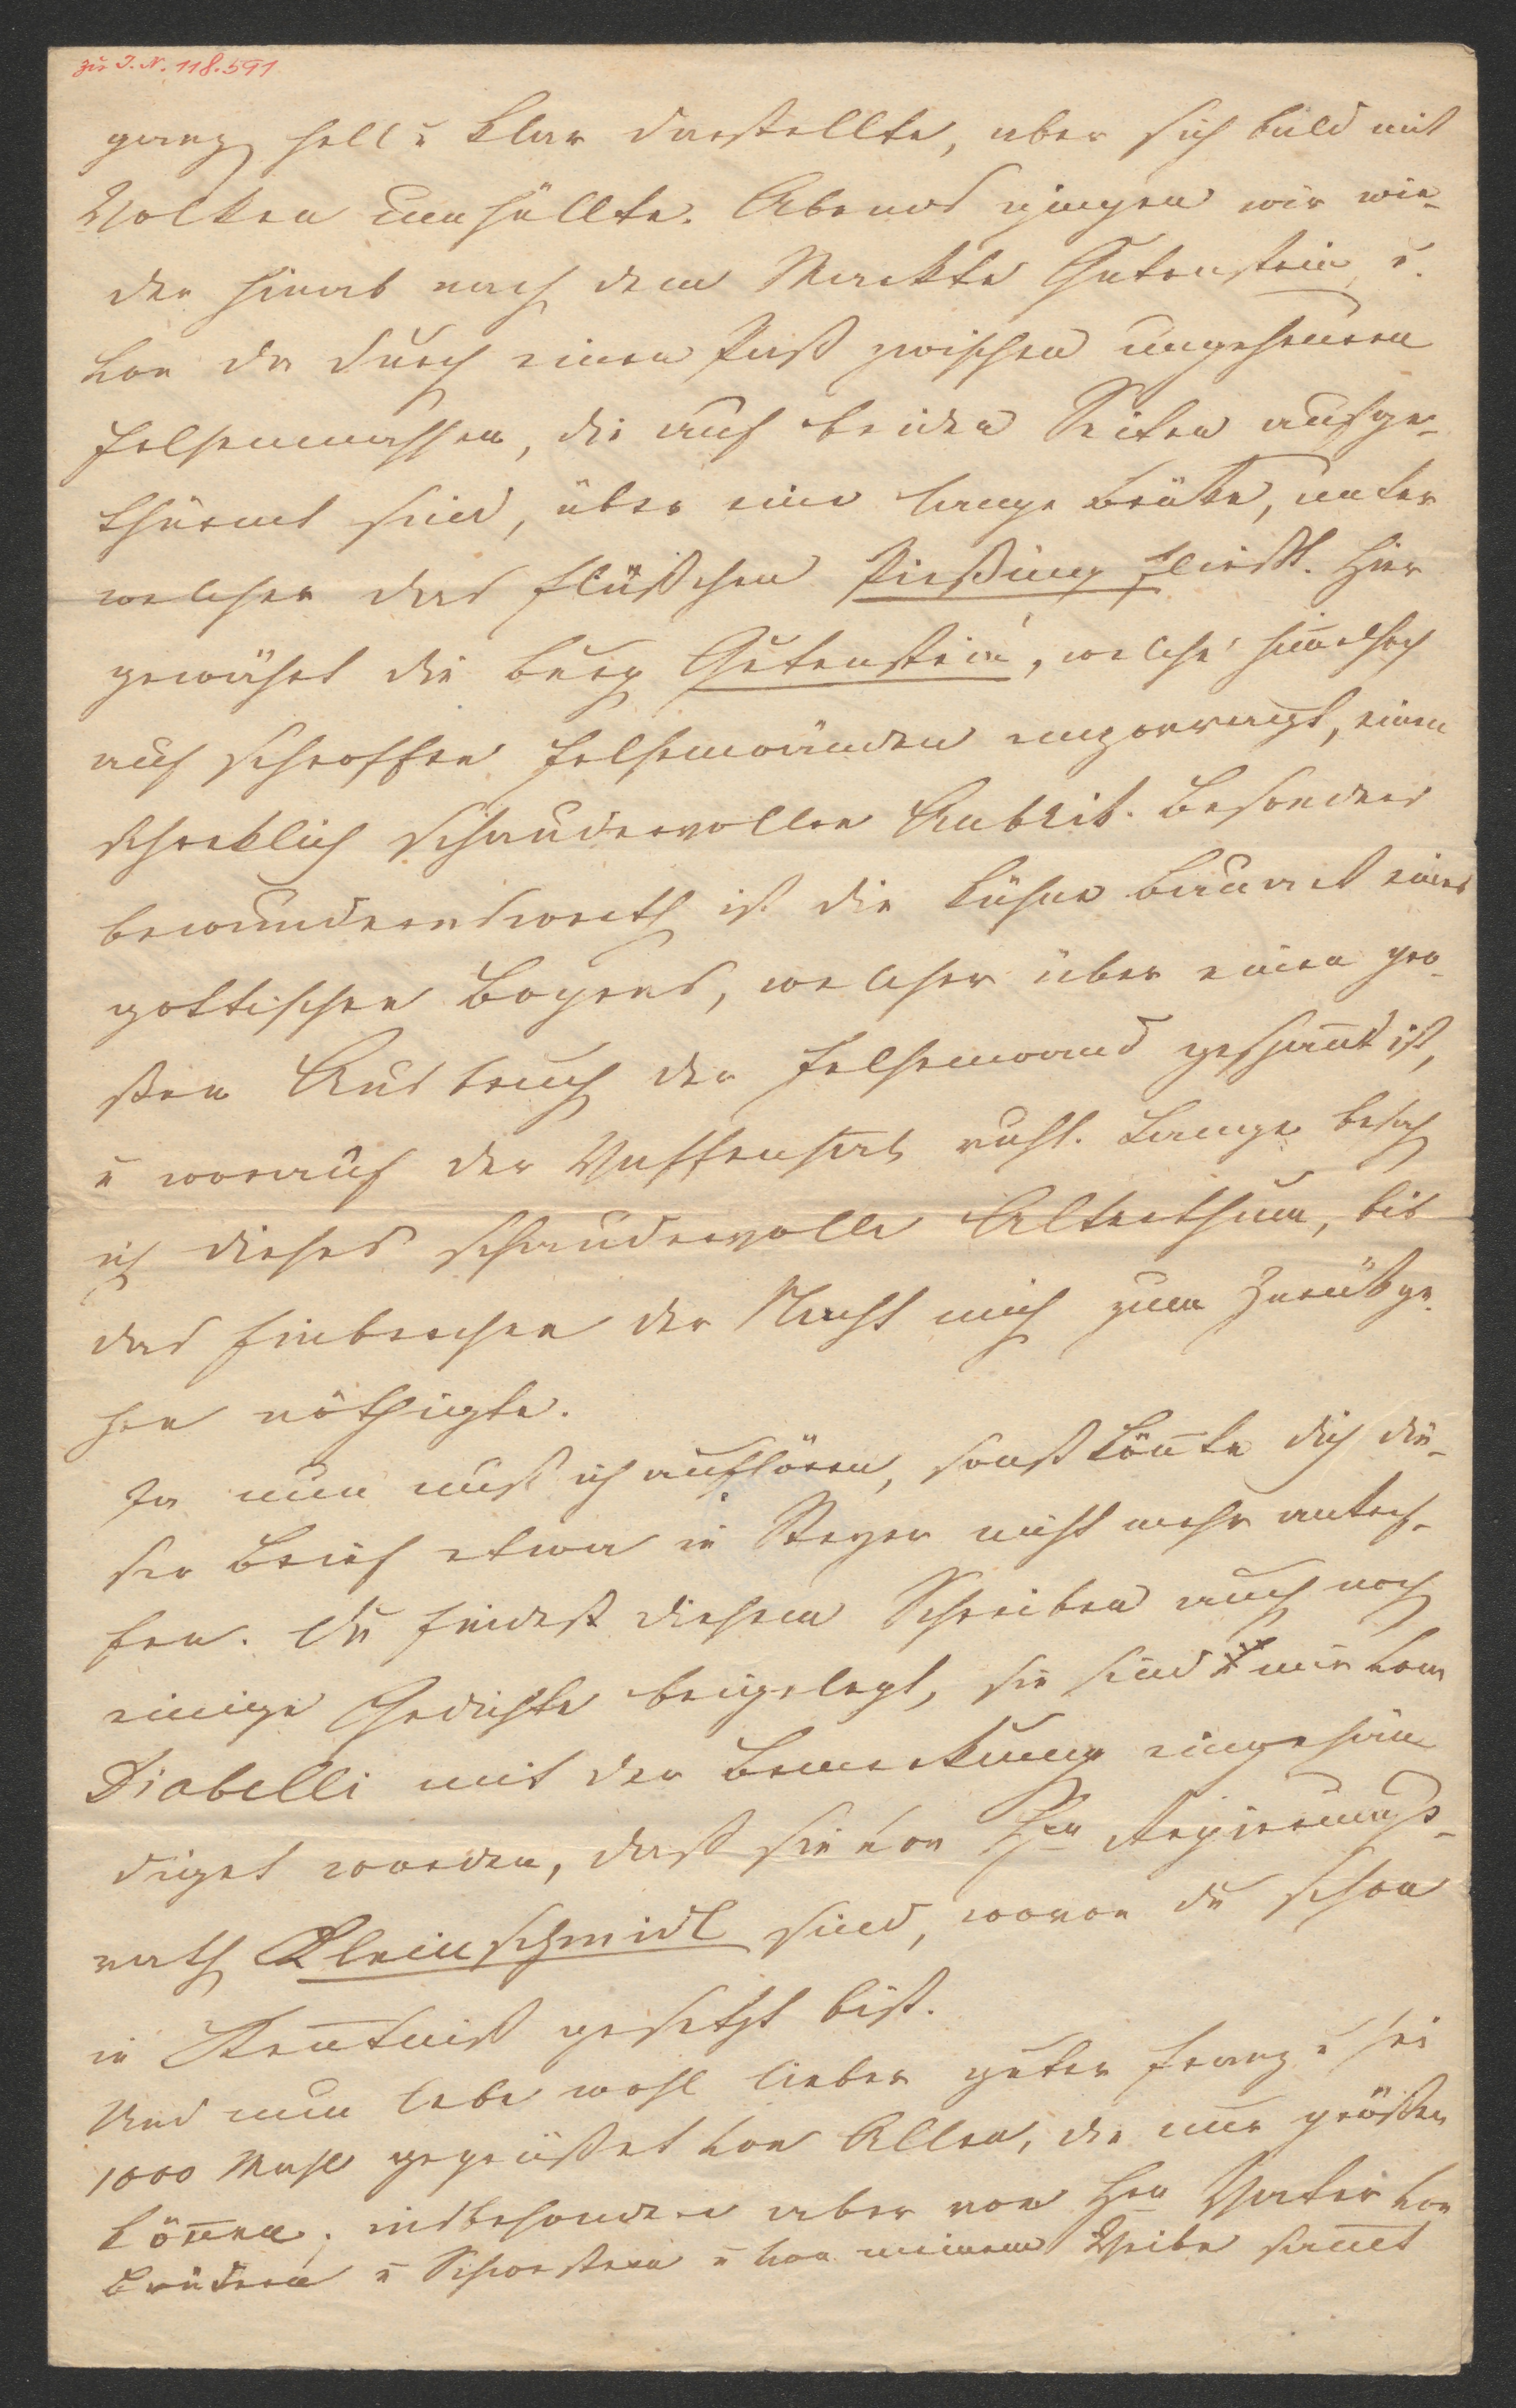 zu I. N. 118.591
ganz hell u klar darstellte, aber sich bald mit
Wolken umhüllte. Abends giengen wir wie-
der hinab nach dem Markte Gutenstein u.
von da durch einen Paß zwischen ungeheuren
Felsenmassen, die auf beiden Seiten aufge-
thürmt sind, über eine lange Brüke, unter
welcher das Flüßchen Pießing fließt. Hier
gewährt die Burg Gutenstein, welche him̄elhoch
auf schroffen Felsenwänden emporragt, einen
schreklich schaudervollen Anblik. Besonders
bewundernswerth ist die kühne Bauart eines
gottischen Bogens, welcher über einen gro-
ßen Ausbruch der Felsenwand gespan̄t ist,
u worauf der Waffensaal ruht. Lange besah
ich dieses schaudervolle Alterthum, bis
das Einbrechen der Nacht mich zum Zurükge-
hen nöthigte.
Ja nun muß ich aufhören, sonst kön̄te dich die-
ser Brief etwa in Steyer nicht mehr antref-
fen. Du findest diesem Schreiben auch noch
einige Gedichte beigelegt, sie sind mir von
Diabelli mit der Bemerkung eingehän-
diget worden, daß sie von Hrn Regierungs-
rath Kleinschmidt sind, wovon du schon
in Ken̄tniß gesetzt bist.
Und nun lebe wohl lieber guter Franz u sei
1000 Mahl gegrüßet von Allen, die nur grüßen
kön̄en, insbesondere aber von Hrn Vater von
Brüdern u Schwestern u von meinem Weibe sam̄t